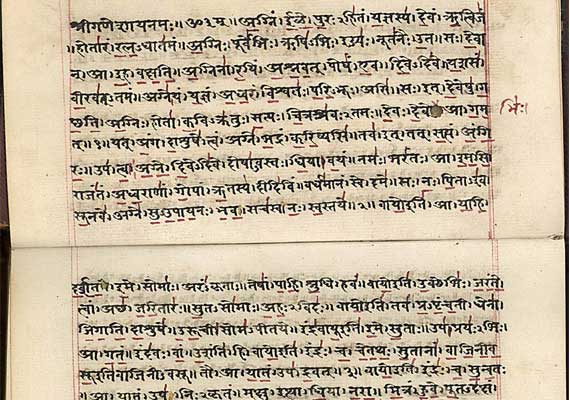 श्रीगणेशायनमः॥ ॐ३म्॥ अग्निं। ईळे। पुरःऽहितं। यज्ञस्य। देवं। ऋत्विजं
। होतारं। रत्नऽधातमं। अग्निः। पूर्वेभिः। ऋषिऽभिः। ईड्यः। नूतनैः। उत। सः। देवा
न्। आ। इह। वक्षति। अग्निना। रयिं। अश्नवत्। पोषं। एव। दिवेऽदिवे। यशसं
वीरवत्ऽतमं। अग्ने। यं। यज्ञं। अध्वरं। विश्वतः। परिऽभूः। असि। सः। इत्। देवेषु। ग
च्छति। अग्निः। होता। कविऽक्रतुः। सत्यः। चित्रश्रवःऽतमः। देवः। देवे आ। गम भिः।
त्॥१॥ यत्। अंग। दाशुषे। त्वं। अग्ने। भद्रं। करिष्यसि। तव। इत्। तत्। सत्यं। अंगि
रः। उप। त्वा। अग्ने। दिवेऽदिवे। दोषाऽवस्तः। धिया। वयं। नमः। भरंतः। आ। इमसि
राजंतं। अध्वराणां। गोपां। ऋतस्य। दीदिविं। वर्धमानं। स्वे। दमे। सः। नः। पिताऽइव
सूनवे। अग्ने। सुऽउपायनः। भव। सचस्व। नः। स्वस्तये॥२॥ वायो इति। आ। याहि।
दर्शत। इमे। सोमाः। अरंऽकृताः। तेषां। पाहि। श्रुधि। हवं। वायो इति। उक्थेभिः। जरंते
त्वां। अच्छ। जरितारः। सुतऽसोमाः। अहःऽविदः। वायो इति। तव। प्रऽपृंचती। धेना।
जिगाति। दाशुषे। उरूची। सोमऽपीतये। इंद्रवायू इति। इमे। सुताः। उप। प्रयःऽभिः।
आ। गतं। इंदवः। वां। उशंति। हि। वायो इति। इंद्रः। च। चेतथः। सुतानां। वाजिनीव
सू इति वाजिनीऽवसू। तौ। आ। यातं। उप। द्रवत्॥३॥ वायो इति। इंद्रः। च। सुन्वतः
आ। यातं। उप। निःऽकृतं। मक्षु। इत्था। धिया। नरा। मित्रं। हुवे। पूतऽदक्षं।